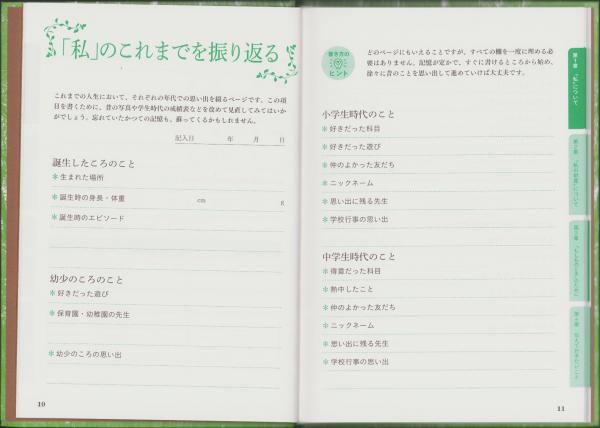 「私」のこれまでを振り返る
これまでの人生において、それぞれの年代での思い出を綴るページです。この項
目を書くために、昔の写真や学生時代の成績表などを改めて見直してみてはいか
がでしょう。忘れていたかつての記憶も、蘇ってくるかもしれません。
記入日 年 月 日
誕生したころのこと
＊生まれた場所
＊誕生時の身長・体重 cm g
＊誕生時のエピソード
幼少のころのこと
＊好きだった遊び
＊保育園・幼稚園の先生
＊幼少のころの思い出
10
書き方の
ヒント
どのページにもいえることですが、すべての欄を一度に埋める必
要はありません。記憶が定かで、すぐに書けるところから始め、
徐々に昔のことを思い出して進めていけば大丈夫です。
小学生時代のこと
＊好きだった科目
＊好きだった遊び
＊仲のよかった友だち
＊ニックネーム
＊思い出に残る先生
＊学校行事の思い出
中学生時代のこと
＊得意だった科目
＊熱中したこと
＊仲のよかった友だち
＊ニックネーム
＊思い出に残る先生
＊学校行事の思い出
11
第1章 「私」について
第2章 「私の財産」について
第3章 「もしものときのために」
第4章 伝えておきたいこと